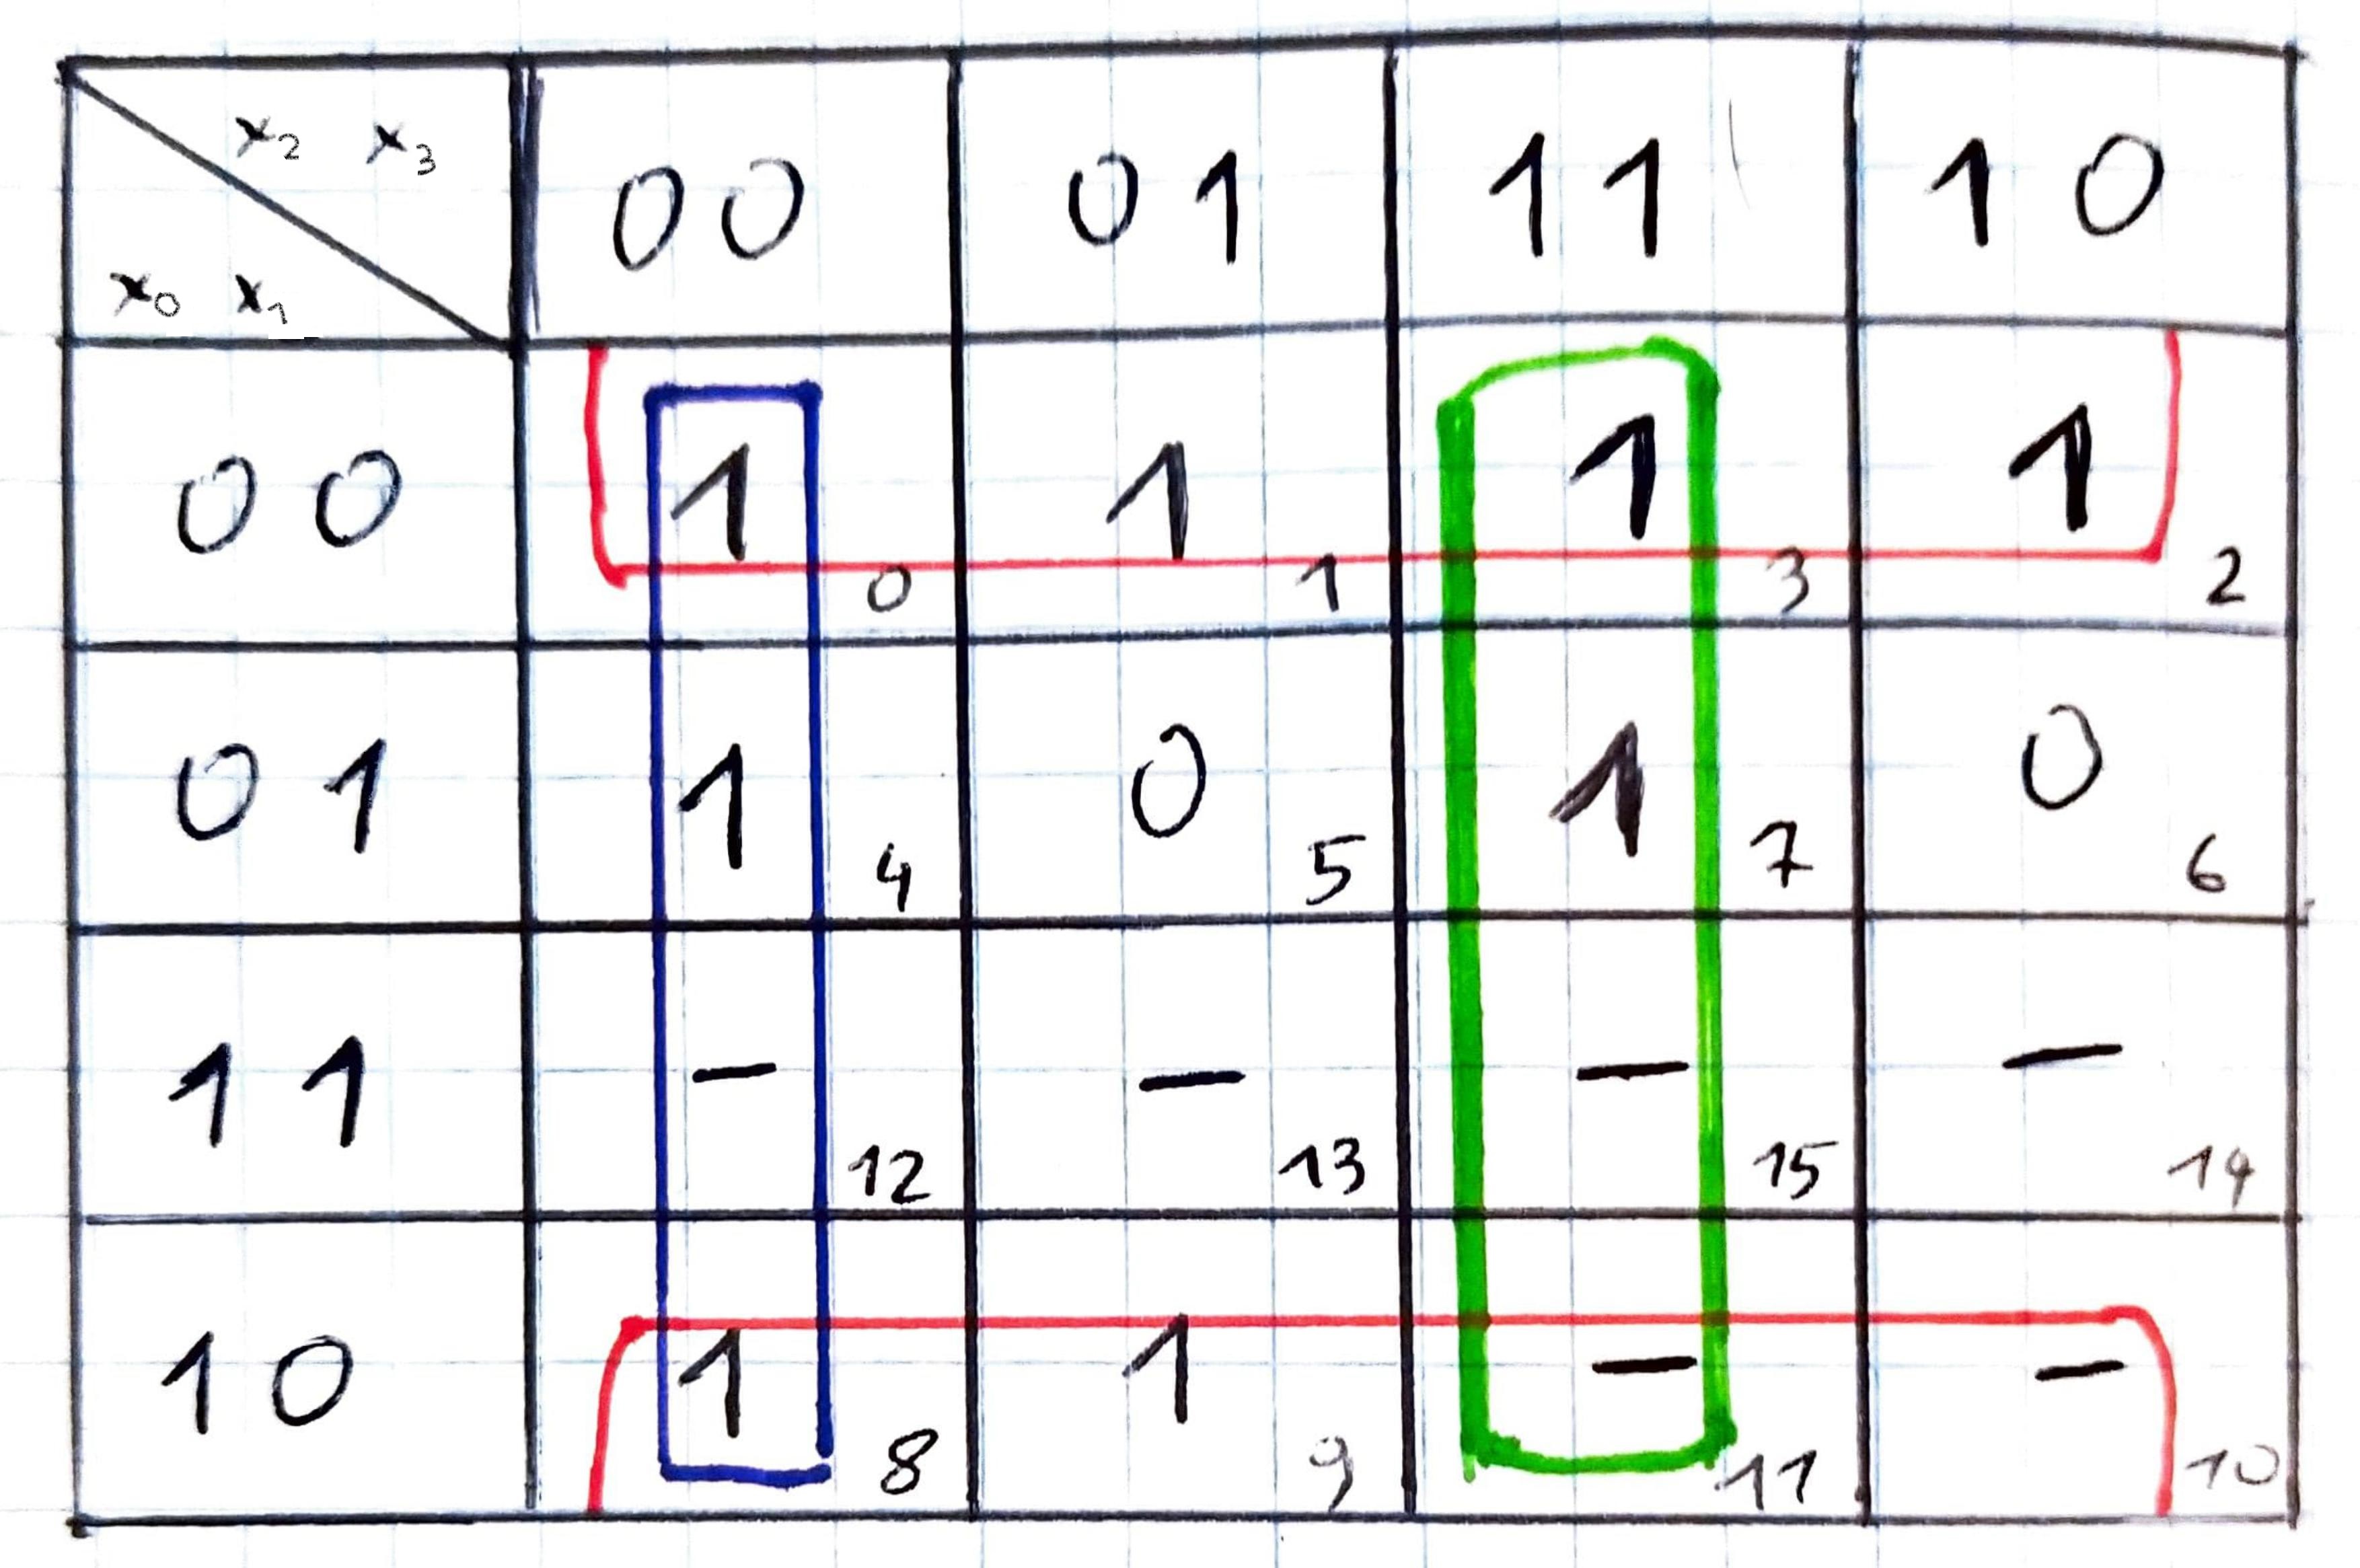 x₂ x₃
x₀ x₁
00 01 11 10
00 1 1 1 1
0 1 3 2
01 1 0 1 0
4 5 7 6
11 – – – –
12 13 15 14
10 1 1 – –
8 9 11 10